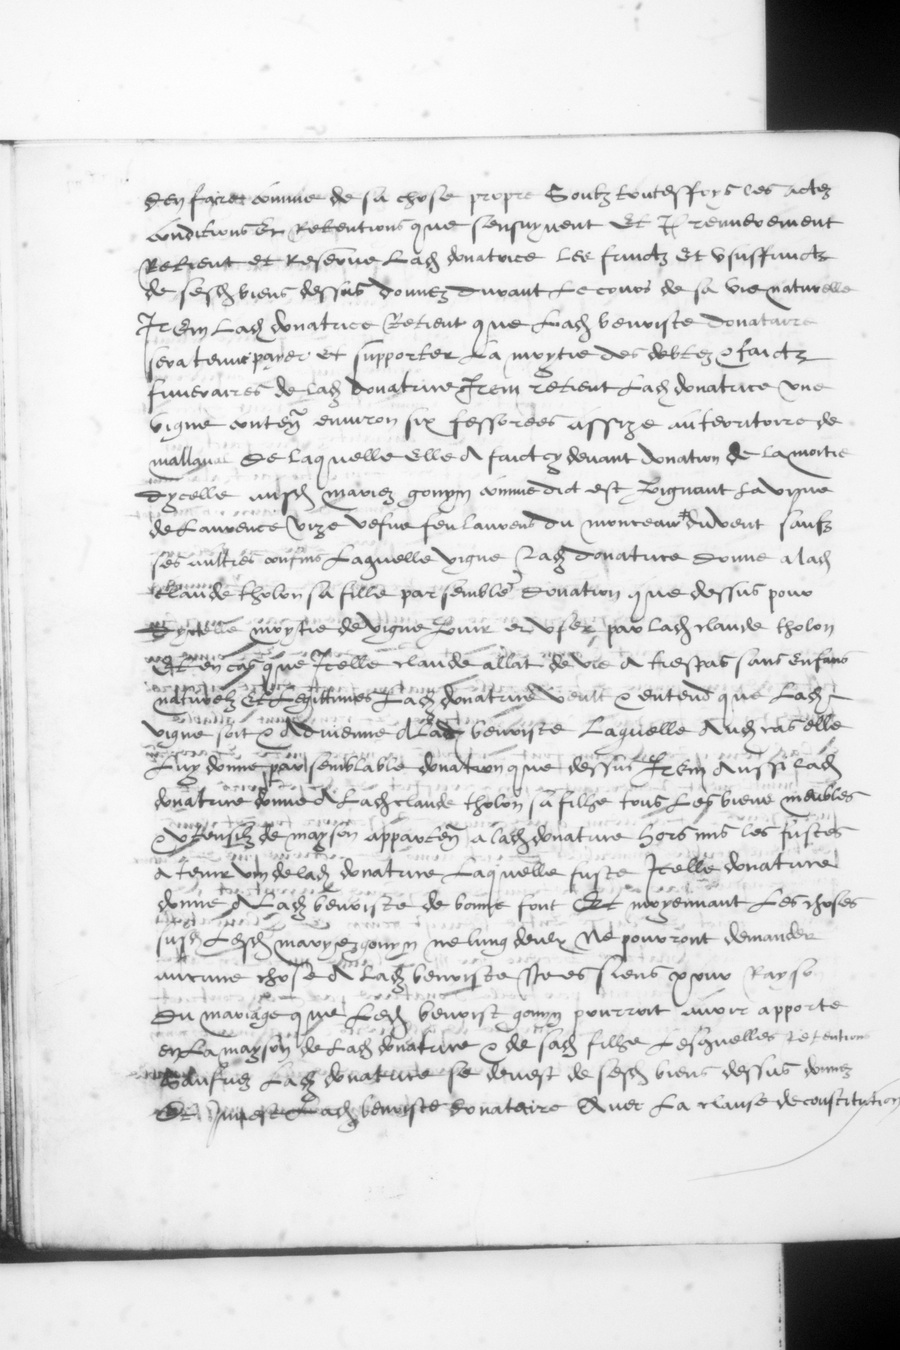 den faire comme de sa chose propre Soubz touteffoys les actez
conditions Et Retentions que sensuyvent Et Premierement
Retient et Reserve Lad donatrice les fruictz Et Usuffruictz
de sesd biens dessus donnez durant Le cours de sa vie naturelle
Item Lad donatrice Retient que Lad benoiste donataire
sera tenue payer Et supporter La moytie des debtez & faictz
funeraires de lad donatrice Item retient Lad donatrice une
vigne conten environ six fessorees assize au teroritoire de
mallaval De laquelle Elle A faict cy devant donation de la moitie
dycelle ausd mariez gonyn comme dict est Joignant La vigne
de Laurence vize vefve feu laurens du monceau du vent saufz
ses aultres confins Laquelle vigne Lad donatrice donne a lad
Claude tholon sa fille par semble donation que dessus pour
Dycelle moytie de vigne Jouir et User par lad claude tholon
Et en cas que Icelle claude allat de vie A trespas sans Enfans
naturelz Et Legittimes Lad donatrice veult & entend que Lad
vigne soit & Advienne A Lad benoiste Laquelle Aud cas elle
Luy donne par semblable donation que dessus Item Aussi lad
donatrice donne A Lad claude tholon sa fillie tous Les biens meubles
& Utensilz de mayson apparten a lad donatrice hors mis les fustes
A tenir vin de lad donatrice Laquelle fuste Icelle donatrice
donne A Lad benoiste de bonne font Et moyennant Les choses
susd Lesd maryez gonyn ne lung deulx Ne pourront demander
aucune chose A lad benoiste Ne es siens & pour Rayso
Du mariage que Led benoist gonyn pourroit avoir apporte
en La mayson de Lad donatrice & de sad fillie Lesquelles retentions
Saufvez Lad donatrice se devest de sesd biens dessus donnez
Et Invest Lad benoiste donataire Avec La clause de constitution